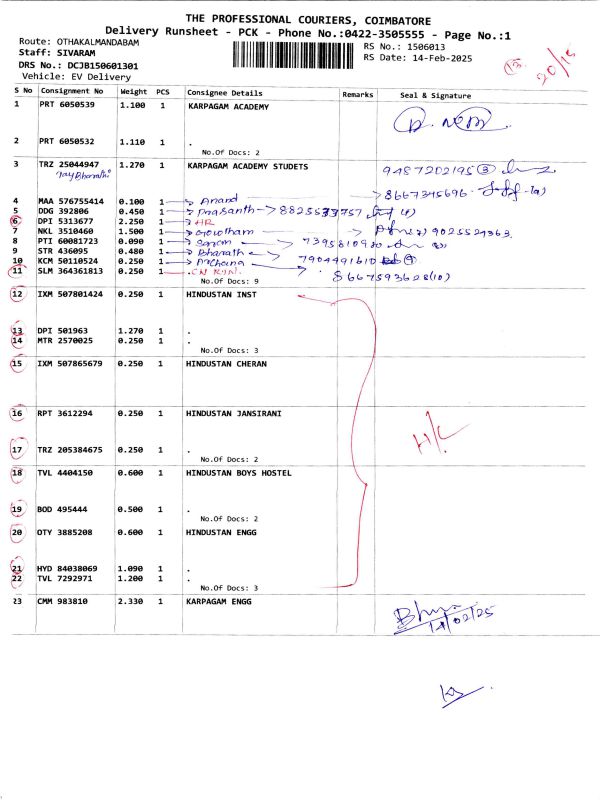 THE PROFESSIONAL COURIERS, COIMBATORE
Delivery Runsheet - PCK - Phone No.:0422-3505555 - Page No.:1
Route: OTHAKALMANDABAM
Staff: SIVARAM
DRS No.: DCJB150601301
Vehicle: EV Delivery
RS No.: 1506013
RS Date: 14-Feb-2025
20/15
S No Consignment No Weight PCS Consignee Details Remarks Seal & Signature
1 PRT 6050539 1.100 1 KARPAGAM ACADEMY
2 PRT 6050532 1.110 1 .
No.Of Docs: 2
3 TRZ 25044947 1.270 1 KARPAGAM ACADEMY STUDETS 9487202195 (3)
4 MAA 576755414 0.100 1 Anand 8667345696
5 DDG 392806 0.450 1 Prasanth
6 DPI 5313677 2.250 1 HR
7 NKL 3510460 1.500 1 Gowtham
8 PTI 60081723 0.090 1
9 STR 436095 0.480 1 Bharath
10 KCM 50110524 0.250 1 7904491610
11 SLM 364361813 0.250 1 . 8667593628 (10)
No.Of Docs: 9
12 IXM 507801424 0.250 1 HINDUSTAN INST
13 DPI 501963 1.270 1 .
14 MTR 2570025 0.250 1 .
No.Of Docs: 3
15 IXM 507865679 0.250 1 HINDUSTAN CHERAN
16 RPT 3612294 0.250 1 HINDUSTAN JANSIRANI
H/C
17 TRZ 205384675 0.250 1 .
No.Of Docs: 2
18 TVL 4404150 0.600 1 HINDUSTAN BOYS HOSTEL
19 BOD 495444 0.500 1 .
No.Of Docs: 2
20 OTY 3885208 0.600 1 HINDUSTAN ENGG
21 HYD 84038069 1.090 1 .
22 TVL 7292971 1.200 1 .
No.Of Docs: 3
23 CMM 983810 2.330 1 KARPAGAM ENGG
14/02/25